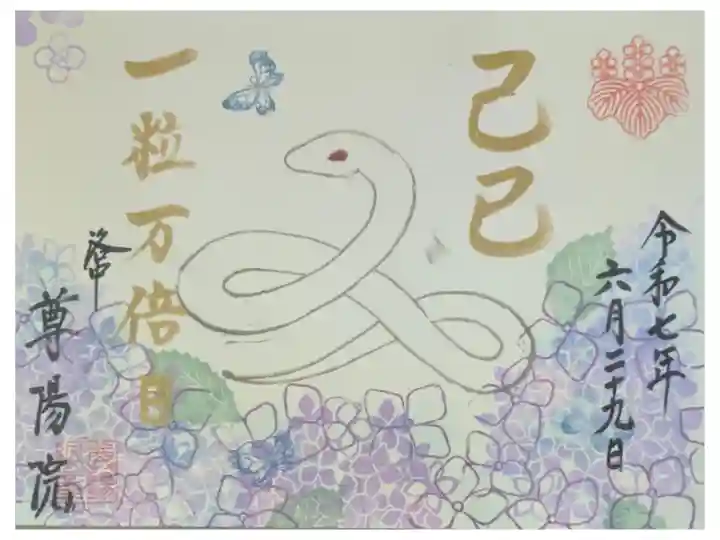 己巳
令和七年
六月二十九日
一粒万倍日
尊陽院